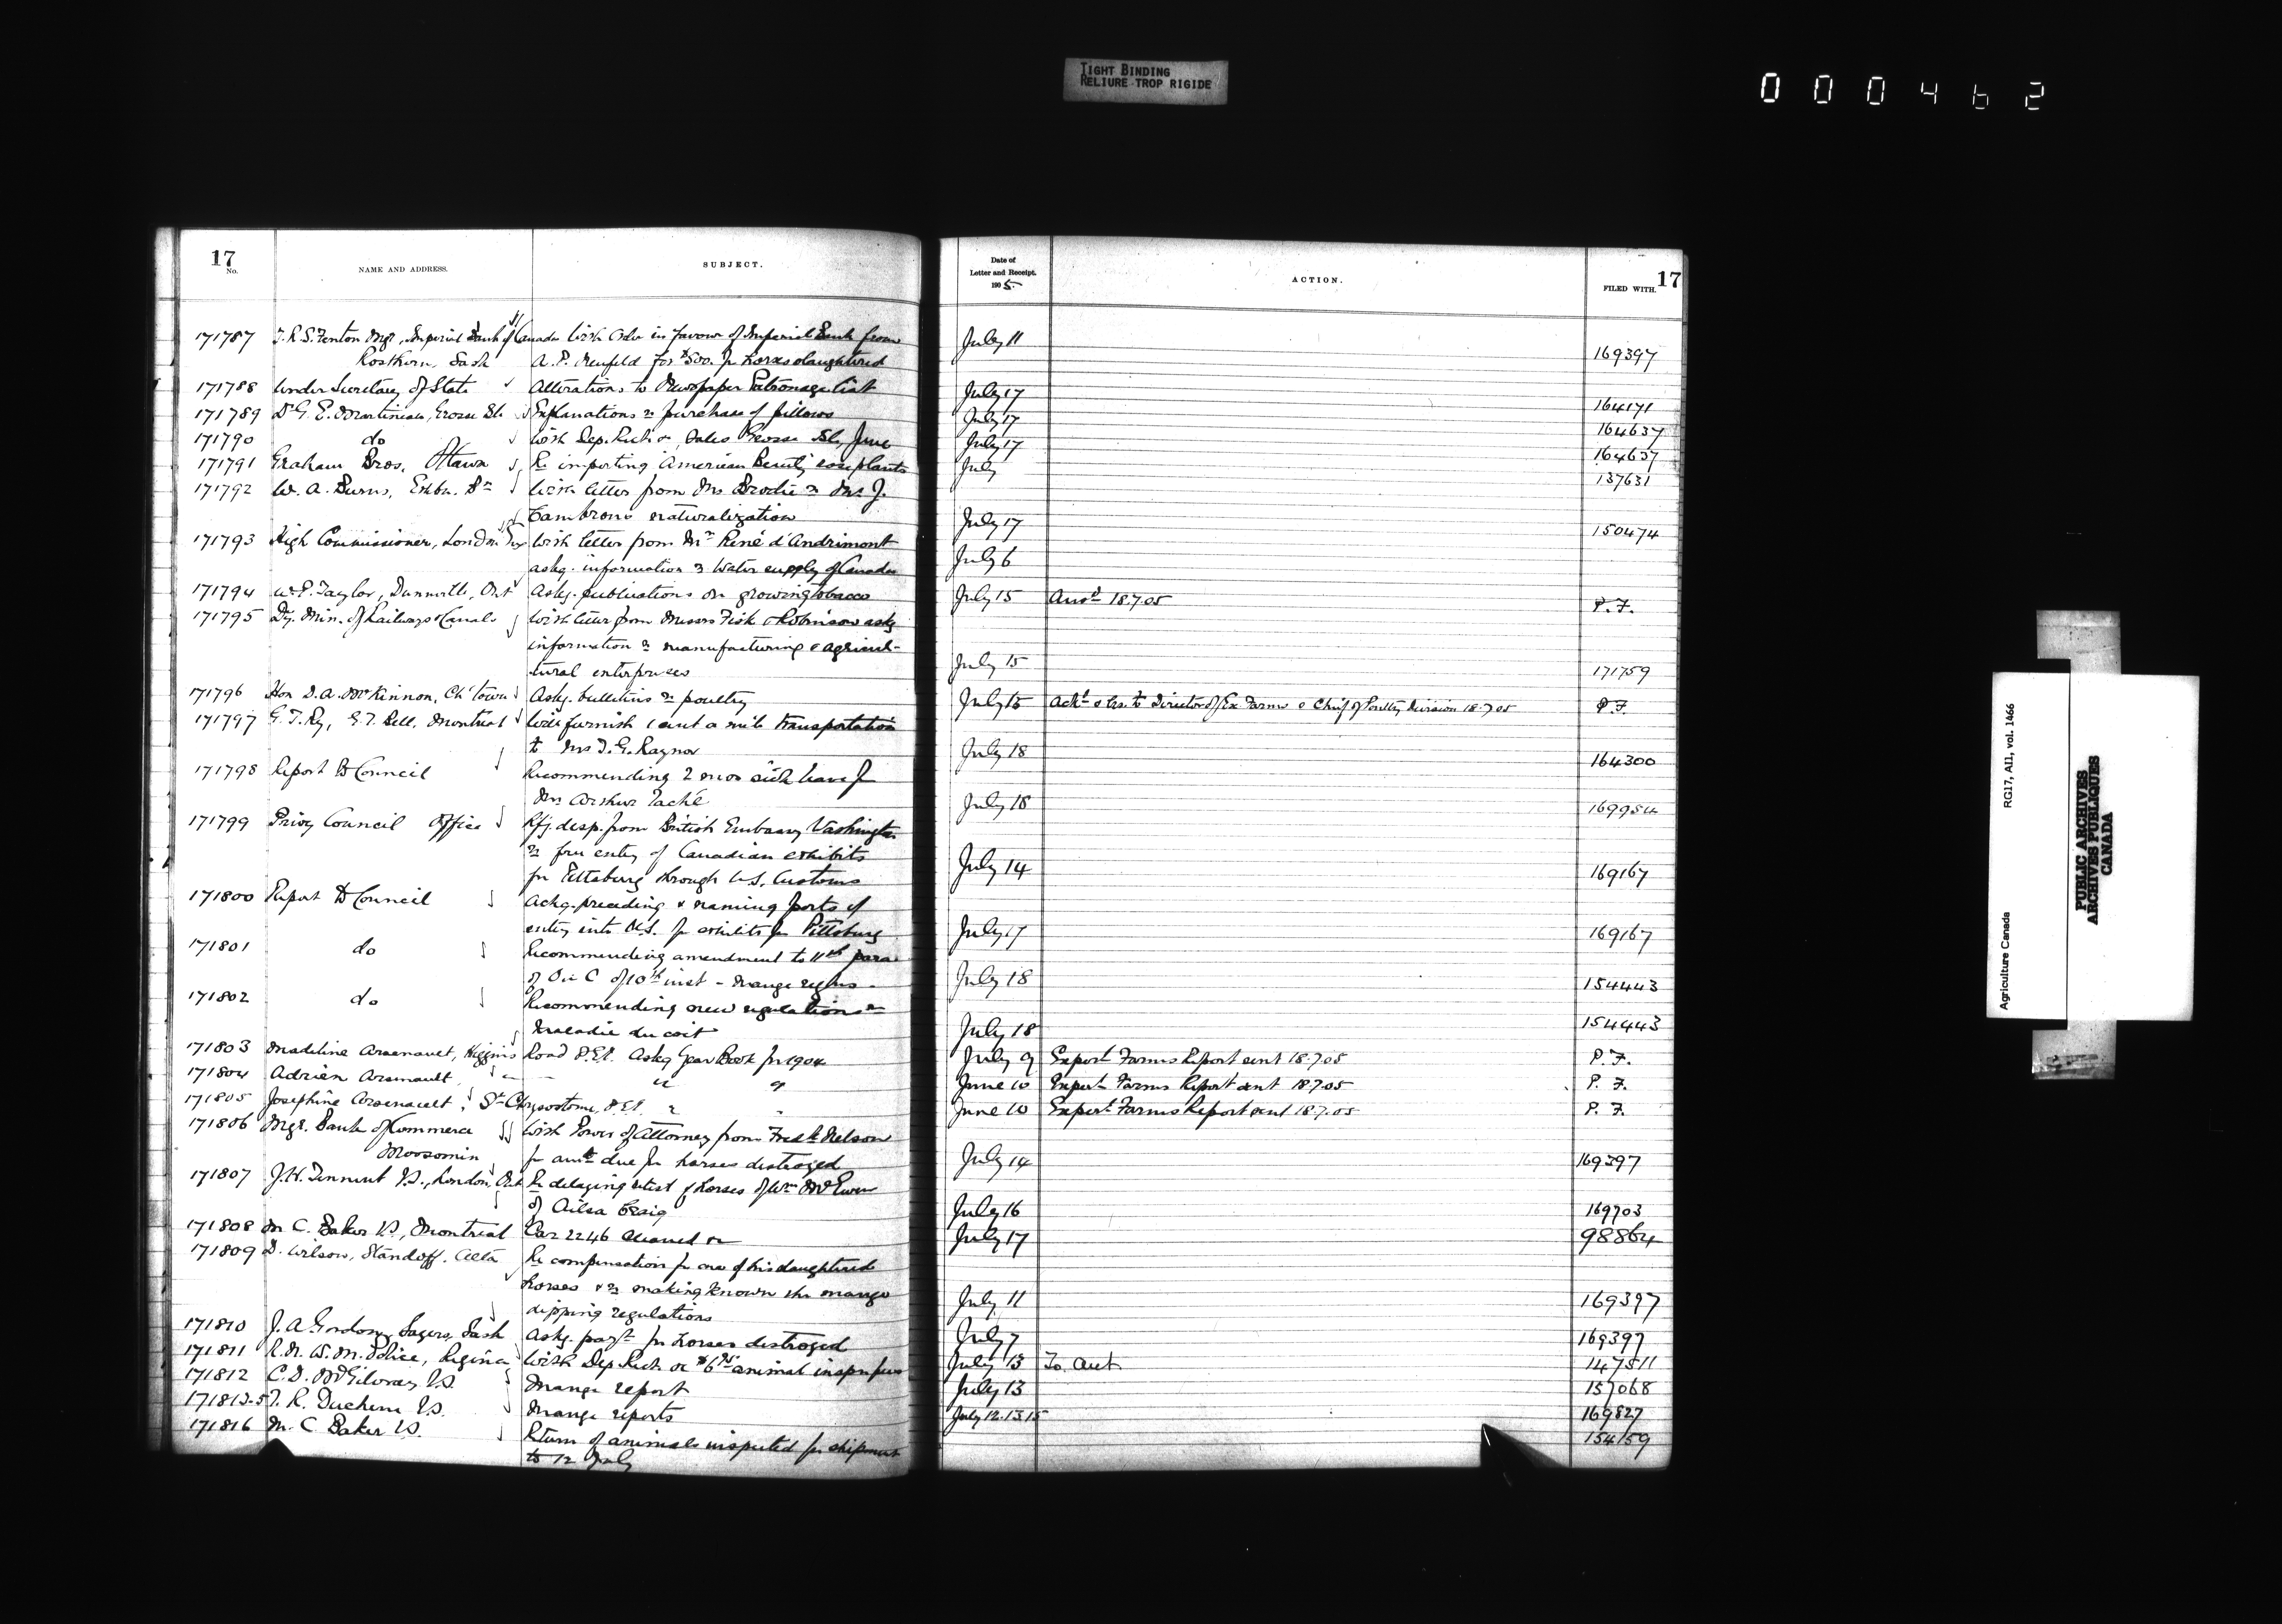 TIGHT BINDING
RELIURE TROP RIGIDE
000462
17
No.
NAME AND ADDRESS.
SUBJECT.
171787 T.R.S. Fenton Mgr, Imperial Bank of Canada With Order in favour of Imperial Bank from
Rosthern, Sask A. P. Neufeld for $500. for horses slaughtered
171788 Under Secretary of State Alterations to Newspaper Patronage list
171789 Dr G. E. Martineau, Grosse Ile Explanations re purchase of pillows
171790 do With Dep. Rect a/c Sales Grosse Ile, June
171791 Graham Bros. Ottawa Re importing American Beauty rose plants
171792 W. A. Burns, Exbn. Br With letter from Mr Brodie re Mr J.
Cambrons naturalization
171793 High Commissioner, London Eng With letter from Mr René d'Andrimont
askg. information re Water supply of Canada
171794 W. P. Taylor, Dunnville, Ont Askg. publications on growing tobacco
171795 Dy. Min. of Railways & Canals With letter from Messrs Fisk & Robinson askg
information re manufacturing & agricul-
tural enterprises
171796 Hon D. A. McKinnon, Ch'town Askg. bulletins re poultry
171797 G. T. Ry, G. T. Bell, Montreal Will furnish 1 cent a mile transportation
to Mrs T. G. Raynor
171798 Report to Council Recommending 2 mos sick leave for
Mr Arthur Taché
171799 Privy Council Office Rfg. desp. from British Embassy Washington
re free entry of Canadian exhibits
for Pittsburg through U.S. Customs
171800 Report to Council Ackg. preceding & naming ports of
entry into U.S. for exhibits for Pittsburg
171801 do Recommending amendment to 11th para
of O in C of 10th inst - mange regns -
171802 do Recommending new regulations re
Maladie du coit
171803 Madeline Arsenault, Higgins Road P.E.I. Askg Year Book for 1904
171804 Adrien Arsenault " " "
171805 Josephine Arsenault, St Chrysostome, P.E.I. " "
171806 Mgr. Bank of Commerce With Power of Attorney from Fredk Nelson
Moosomin for amt due for horses destroyed
171807 J. H. Tennent V.S., London, Ont Re delaying retest of horses of Wm McEwen
of Ailsa Craig
171808 M C. Baker V.S, Montreal Car 2246 cleaned &c
171809 D. Wilson, Standoff. Alta Re compensation for one of his slaughtered
horses & re making known the mange
dipping regulations
171810 J. A. Gordon, Sask Askg. payt for horses destroyed
171811 R. N. W. M. Police, Regina With Dep Rect a/c animal inspn fees
171812 C. D. McGilvray V.S. Mange report
171813-5 T. R. Duchene V.S. Mange reports
171816 M. C Baker V.S. Return of animals inspected for shipment
to 12 July
Date of
Letter and Receipt.
1905.
ACTION.
FILED WITH.
17
July 11 169397
July 17 164171
July 17 164637
July 17 164637
July 137631
July 17 150474
July 6
July 15 Ansd 18.7.05 P.F.
July 15 171759
July 15 Ackd & trs. to Director of Ex. Farms & Chief of Poultry Division 18.7.05 P.F.
July 18 164300
July 18 169954
July 14 169167
July 17 169167
July 18 154443
July 18 154443
July 9 Expert Farms Report sent 18.7.05 P.F.
June 10 Expert Farms Report sent 18.7.05 P.F.
June 10 Expert Farms Report sent 18.7.05 P.F.
July 14 169397
July 16 169703
July 17 98864
July 11 169397
July 7 169397
July 13 To Acct 147511
July 13 157068
July 12.13.15 169827
154159
Agriculture Canada
RG17, AII, vol. 1466
PUBLIC ARCHIVES
ARCHIVES PUBLIQUES
CANADA